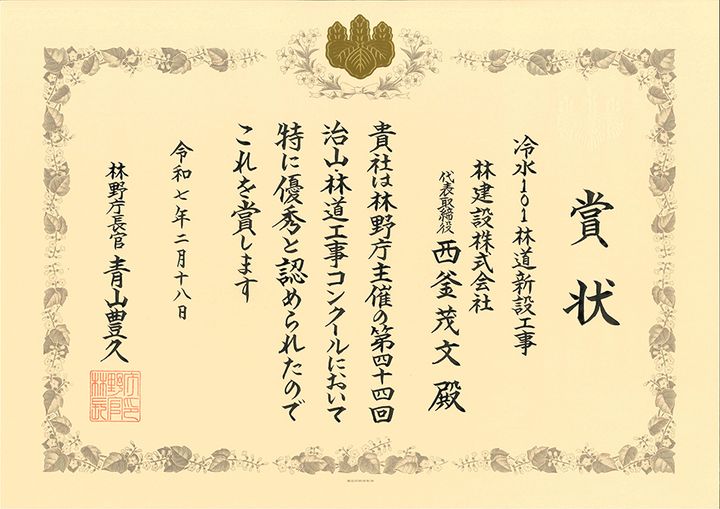 賞状
冷水101林道新設工事
林建設株式会社
代表取締役 西釜茂文 殿
貴社は林野庁主催の第四十四回
治山・林道工事コンクールにおいて
特に優秀と認められたので
これを賞します
令和七年二月十八日
林野庁長官 青山豊久